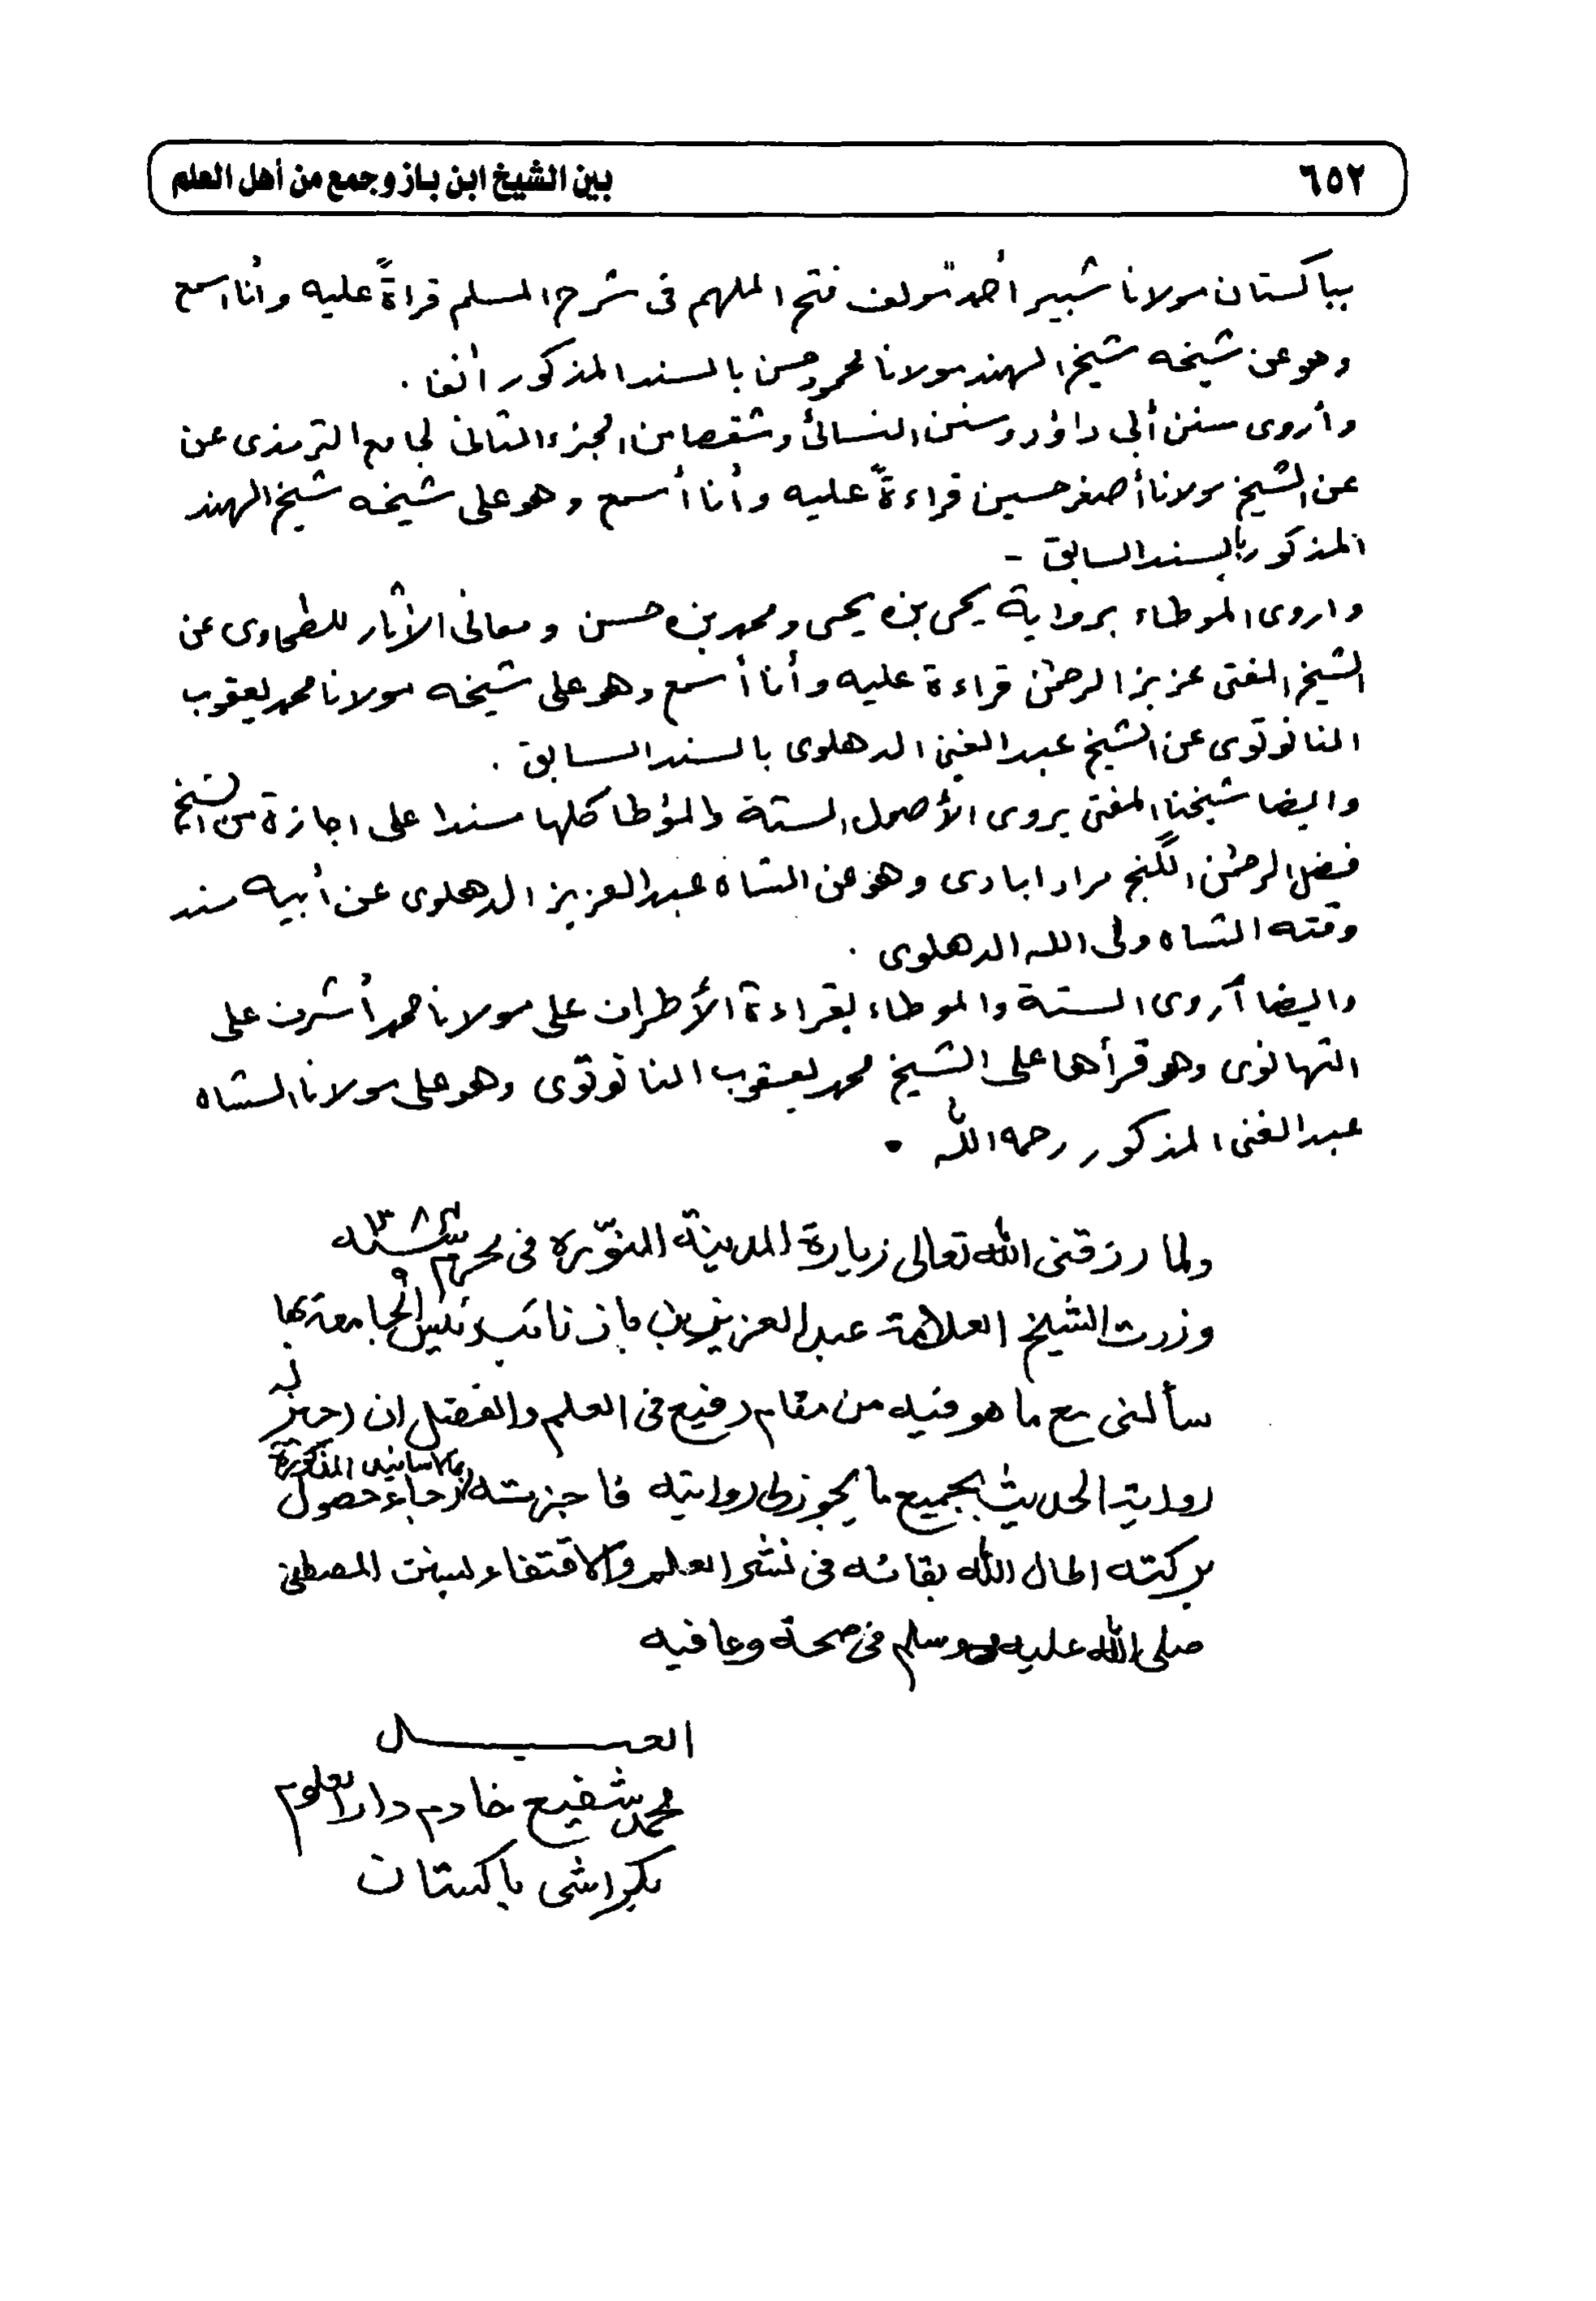 ٦٥٢
بين الشيخ ابن باز وجمع من أهل العلم
بباكستان مولانا شبير أحمد مؤلف فتح الملهم فى شرح المسلم قراةً عليه وأنا اسمع
وهو عن شيخه شيخ الهند مولانا محمود حسن بالسند المذكور أنفا .
وأروى سنن أبى داؤد وسنن النسائى وشقصا من الجزء الثانى لجامع الترمذى عن
عن الشيخ مولانا أصغر حسين قراءةً عليه وأنا أسمع وهو على شيخه شيخ الهند
المذكور بالسند السابق -
واروى الموطاء برواية يحى بن يحى ومحمد بن حسن ومعانى الاثار للطحاوى عن
الشيخ المفتى عزيز الرحمٰن قراءة عليه وأنا أسمع وهو على شيخه مولانا محمد يعقوب
النانوتوى عن الشيخ عبد الغنى الدهلوى بالسند السابق .
وايضا شيخنا المفتى يروى الأصول الستة والمؤطا كلها مسندا على اجازة من الشيخ
فضل الرحمٰن الگنج مرادابادى وهو عن الشاه عبد العزيز الدهلوى عن أبيه مسند
وقته الشاه ولى الله الدهلوى .
وايضا أروى الستة والموطاء بقراءة الأطراف على مولانا محمد أشرف على
التهانوى وهو قرأها على الشيخ محمد يعقوب النانوتوى وهو على مولانا الشاه
عبد الغنى المذكور رحمه الله .
ولما رزقنى الله تعالى زيارة المدينة المنوّره فى محرم
وزرت الشيخ العلامة عبد العزيز بن باز نائب رئيس الجامعة بها
سألنى مع ما هو فيه من مقام رفيع فى العلم والفضل ان اجيز له
رواية الحديث بجميع ما يجوز لى روايته فاجزته بالاسانيد المذكورة رجاء حصول
بركته اطال الله بقائه فى نشر العلم والاقتفاء لسنن المصطفى
صلى الله عليه وسلم فى صحة وعافيه
العبد
محمد شفيع خادم دار العلوم
بكراشى باكستان